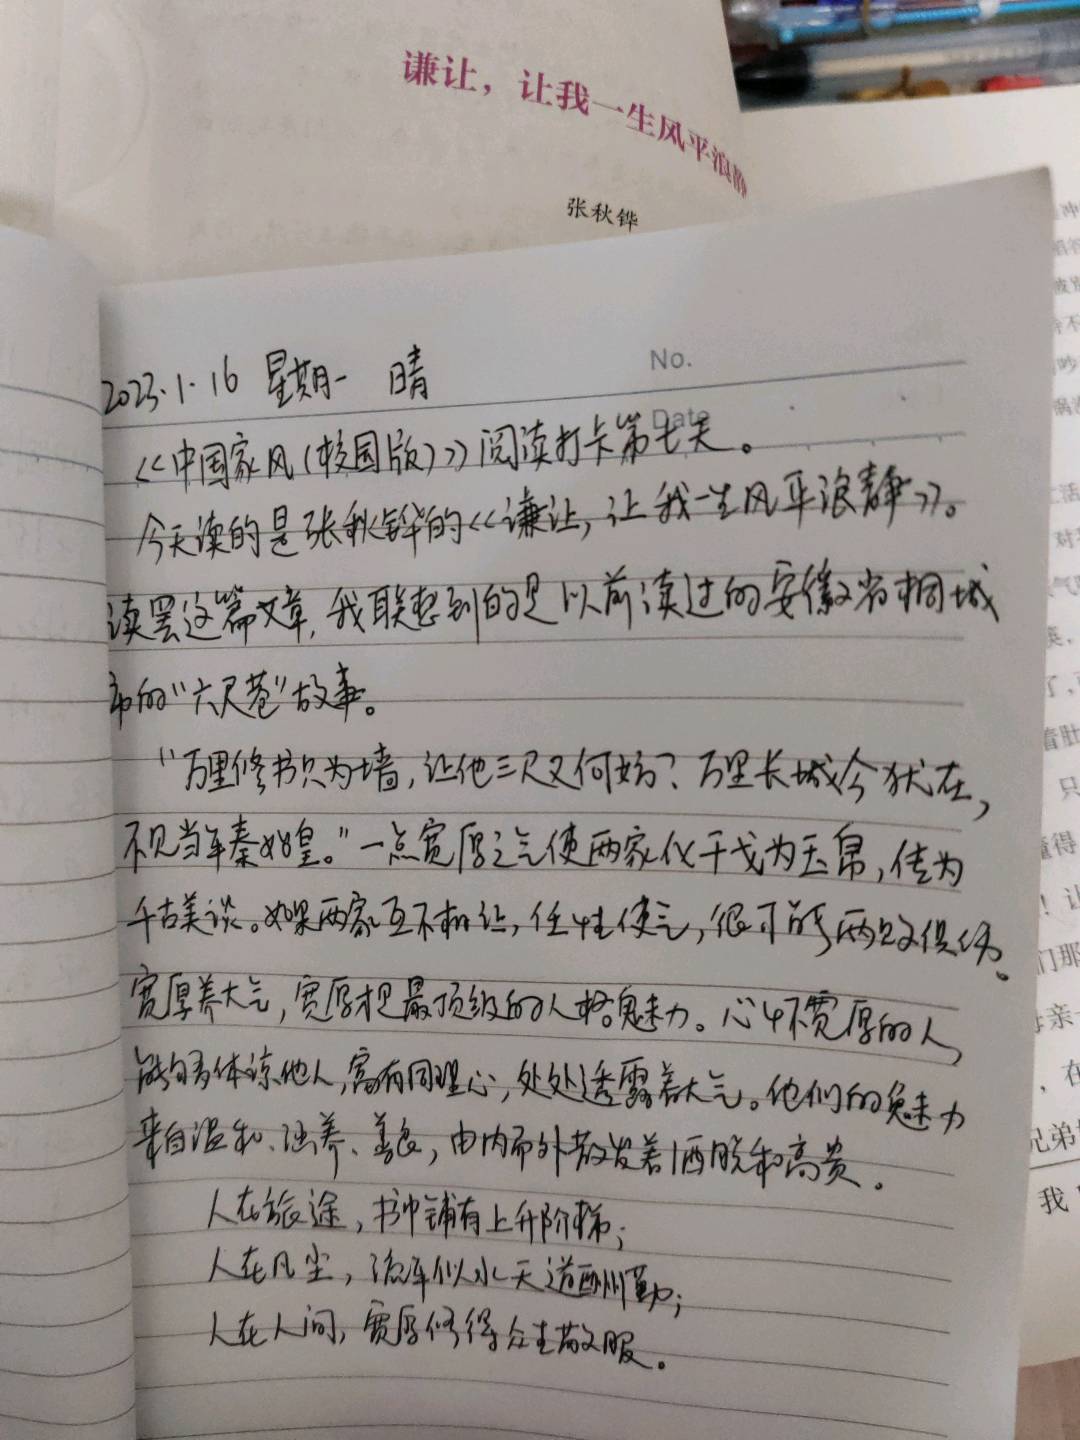 谦让，让我一生风平浪静
张秋铧
No.
Date
2023.1.16 星期一 晴
《中国家风(校园版)》阅读打卡第七天。
今天读的是张秋铧的《谦让,让我一生风平浪静》。
读罢这篇文章,我联想到的是以前读过的安徽省桐城
市的“六尺巷”故事。
“万里修书只为墙,让他三尺又何妨?万里长城今犹在,
不见当年秦始皇。”一点宽厚之气使两家化干戈为玉帛,传为
千古美谈。如果两家互不相让,任性使气,很可能两败俱伤。
宽厚养大气,宽厚才是最顶级的人格魅力。心怀宽厚的人,
能够多体谅他人,富有同理心,处处透露着大气。他们的魅力
来自温和、涵养、善良,由内而外散发着洒脱和高贵。
人在旅途,书中铺有上升阶梯;
人在凡尘,流年似水天道酬勤;
人在人间,宽厚修得众生敬服。
对
气
英，
了，
着肚
只
懂得
！让
们那
母亲
，在
兄弟
我